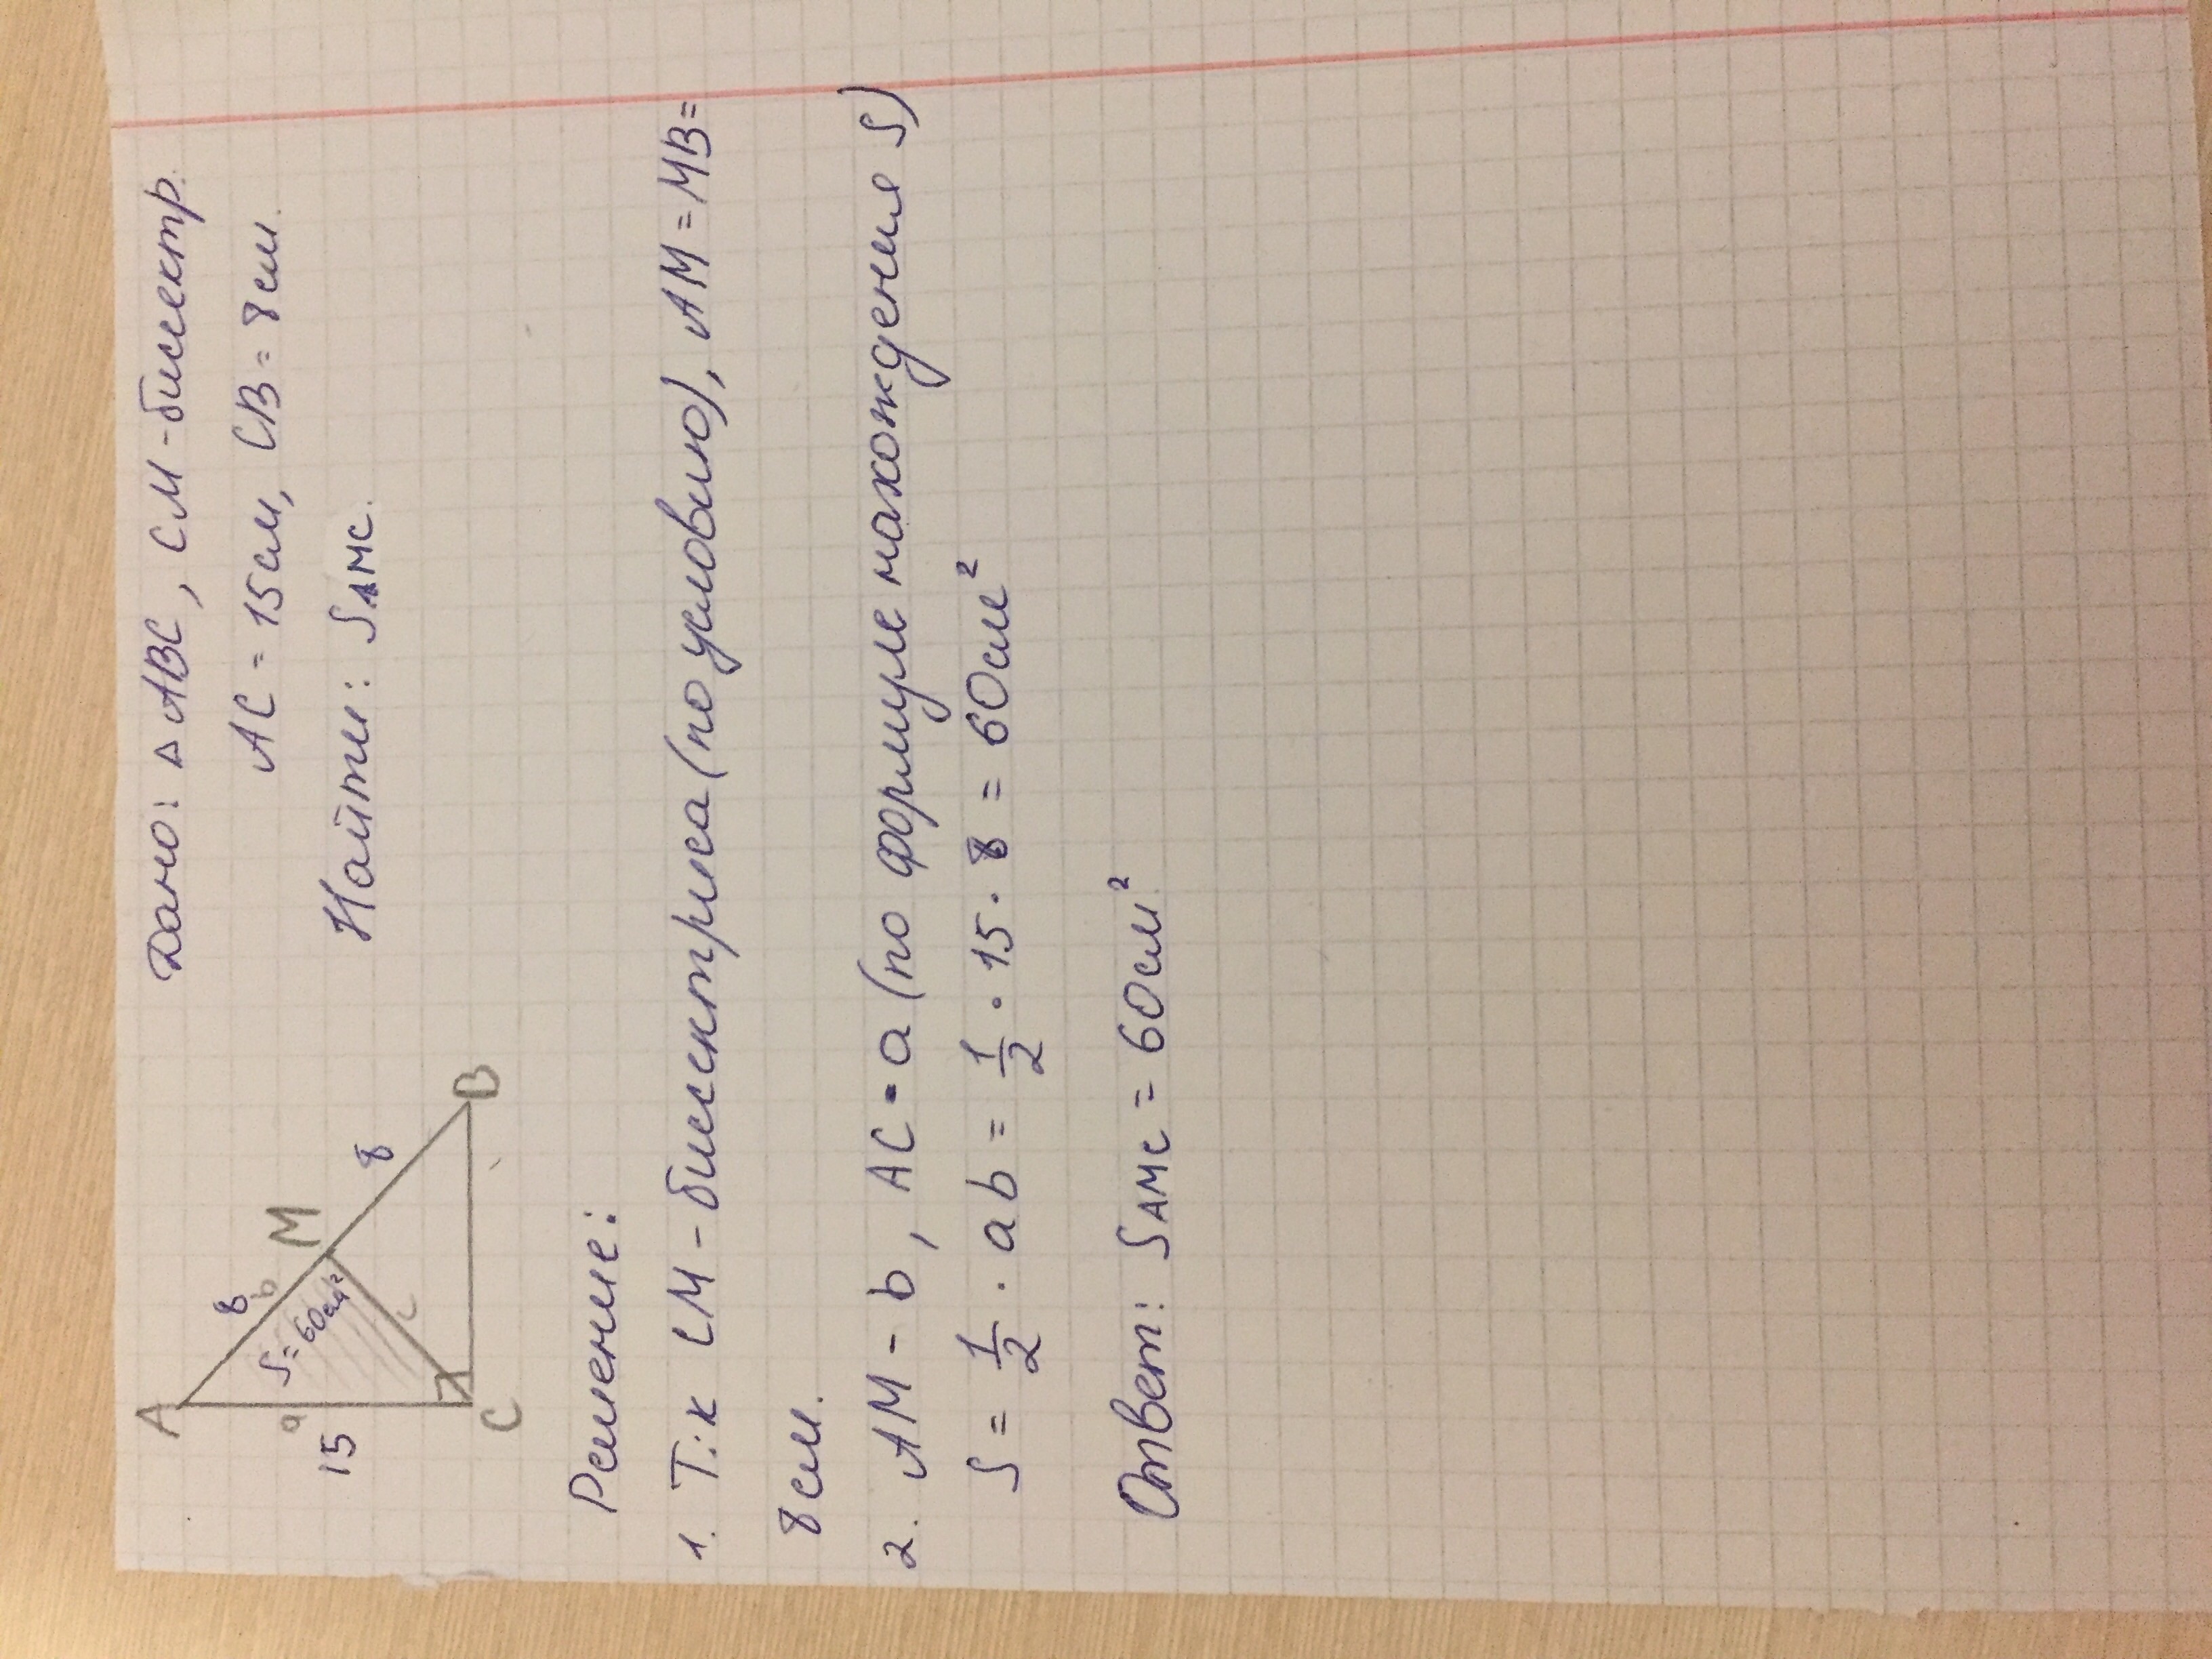 Дано: △ ABC, CM - бисектр.
AC = 15см, CB = 8 см.
Найти: SAMC.
A
8
b
M
8
S = 60см²
a
15
c
C
B
Решение:
1. Т:к CM - биссектриса (по условию), AM = MB =
8 см.
2. AM - b, AC - a (по формуле нахождения S)
S = 1/2 · ab = 1/2 · 15 · 8 = 60см²
Ответ: SAMC = 60см²